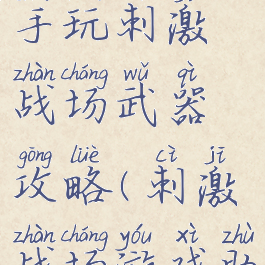 手玩刺激
zhàn chǎng wǔ qì
战场武器
gōng lüè cì jī
攻略(刺激
zhàn chǎng yóu xì zhù
战场游戏助